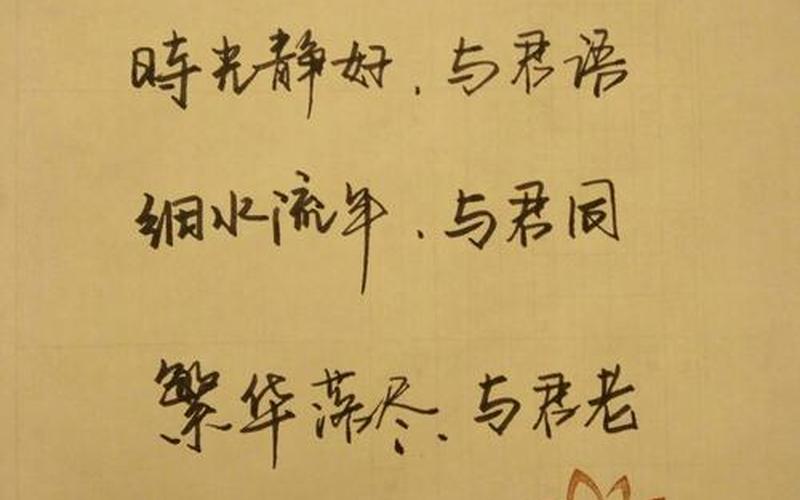 時光静好，与君语
细水流年，与君同
繁华落尽，与君老